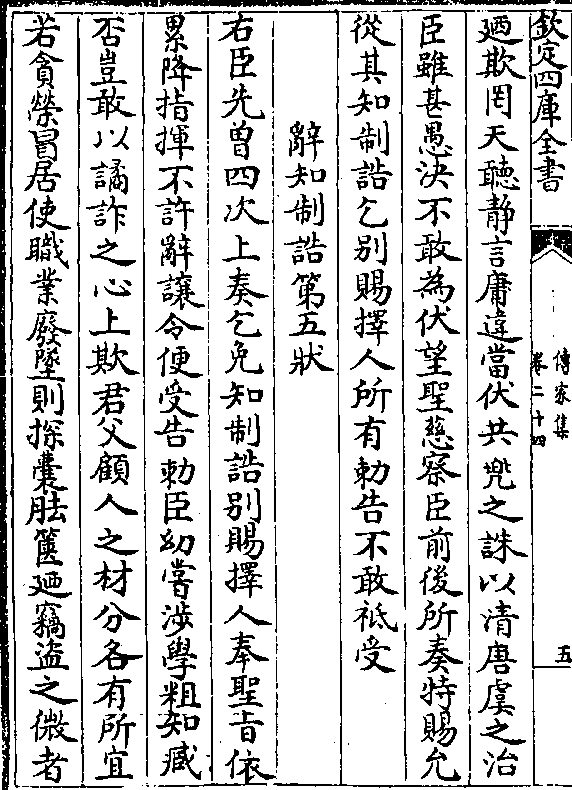 欽定四庫全書
傳家集
卷二十四
五
廼欺罔天聽靜言庸違當伏共兜之誅以清唐虞之治
臣雖甚愚決不敢為伏望聖慈察臣前後所奏特賜允
從其知制誥乞别賜擇人所有勅告不敢祗受
辭知制誥第五狀
右臣先曾四次上奏乞免知制誥别賜擇人奉聖旨依
累降指揮不許辭讓令便受告勅臣幼嘗涉學粗知臧
否豈敢以譎詐之心上欺君父顧人之材分各有所宜
若貪榮冒居使職業廢墜則探囊胠篋廼竊盜之微者